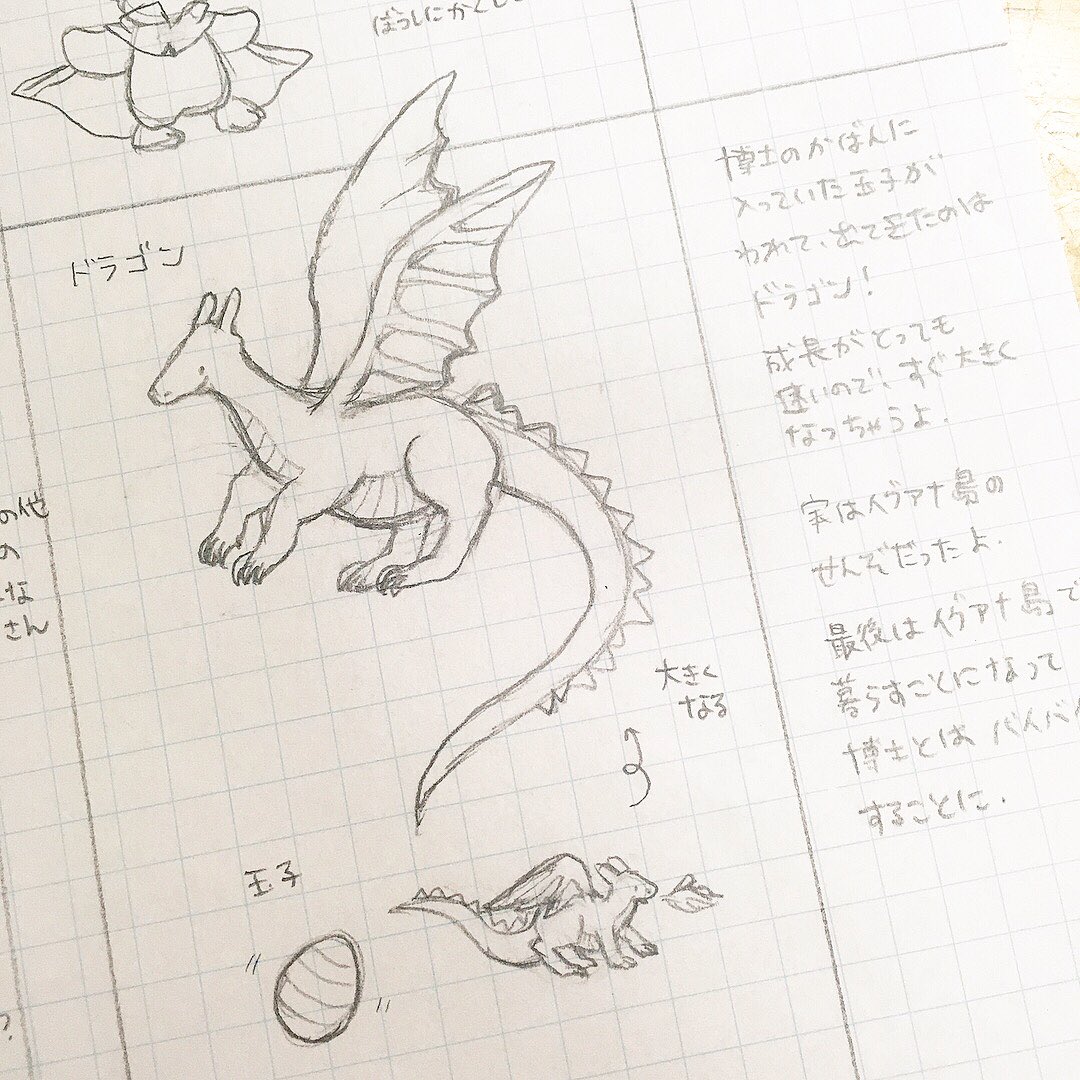 ぼうしにかくし
ドラゴン
の他
の
な
さん
博士のかばんに
入っていた玉子が
われて、出てきたのは
ドラゴン!
成長がとっても
速いので、すぐ大きく
なっちゃうよ.
実はイヴァナ島の
せんぞだったよ.
最後はイヴァナ島で
暮らすことになって
博士とはバイバイ
することに.
大きく
なる
玉子
?